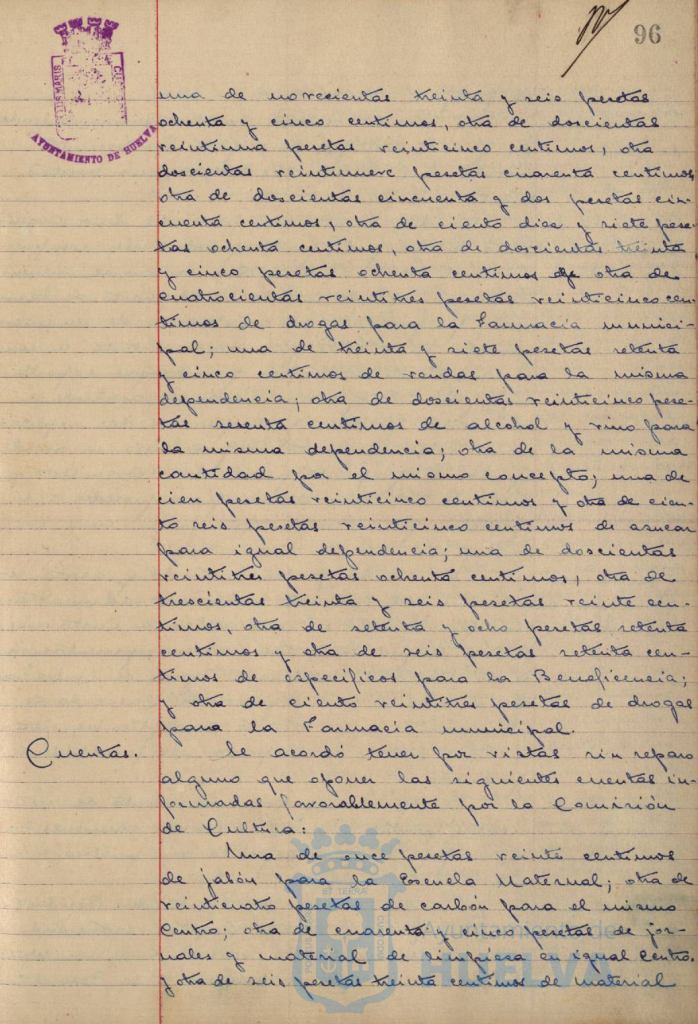 96
AYUNTAMIENTO DE HUELVA
una de novecientas treinta y seis pesetas
ochenta y cinco centimos, otra de doscientas
veintiuna pesetas veinticinco centimos, otra
doscientas veintinueve pesetas cuarenta centimos
otra de doscientas cincuenta y dos pesetas cin-
cuenta centimos, otra de ciento diez y siete pese-
tas ochenta centimos, otra de doscientas treinta
y cinco pesetas ochenta centimos y otra de
cuatrocientas veintitres pesetas veinticinco cen-
timos de drogas para la Farmacia munici-
pal; una de treinta y siete pesetas setenta
y cinco centimos de vendas para la misma
dependencia; otra de doscientas veinticinco pese-
tas sesenta centimos de alcohol y vino para
la misma dependencia; otra de la misma
cantidad por el mismo concepto; una de
cien pesetas veinticinco centimos y otra de cien-
to seis pesetas veinticinco centimos de azucar
para igual dependencia; una de doscientas
veintitres pesetas ochenta centimos, otra de
trescientas treinta y seis pesetas veinte cen-
timos, otra de setenta y ocho pesetas setenta
centimos y otra de seis pesetas setenta cen-
timos de especificos para la Beneficencia;
y otra de ciento veintitres pesetas de drogas
para la Farmacia municipal.
Cuentas. Se acordó tener por vistas sin reparo
alguno que oponer las siguientes cuentas in-
formadas favorablemente por la Comisión
de Cultura:
Una de once pesetas veinte centimos
de jabón para la Escuela Maternal; otra de
veinticuatro pesetas de carbón para el mismo
Centro; otra de cuarenta y cinco pesetas de jor-
nales y material de limpieza en igual Centro,
y otra de seis pesetas treinta centimos de material
Ayuntamiento de
HUELVA